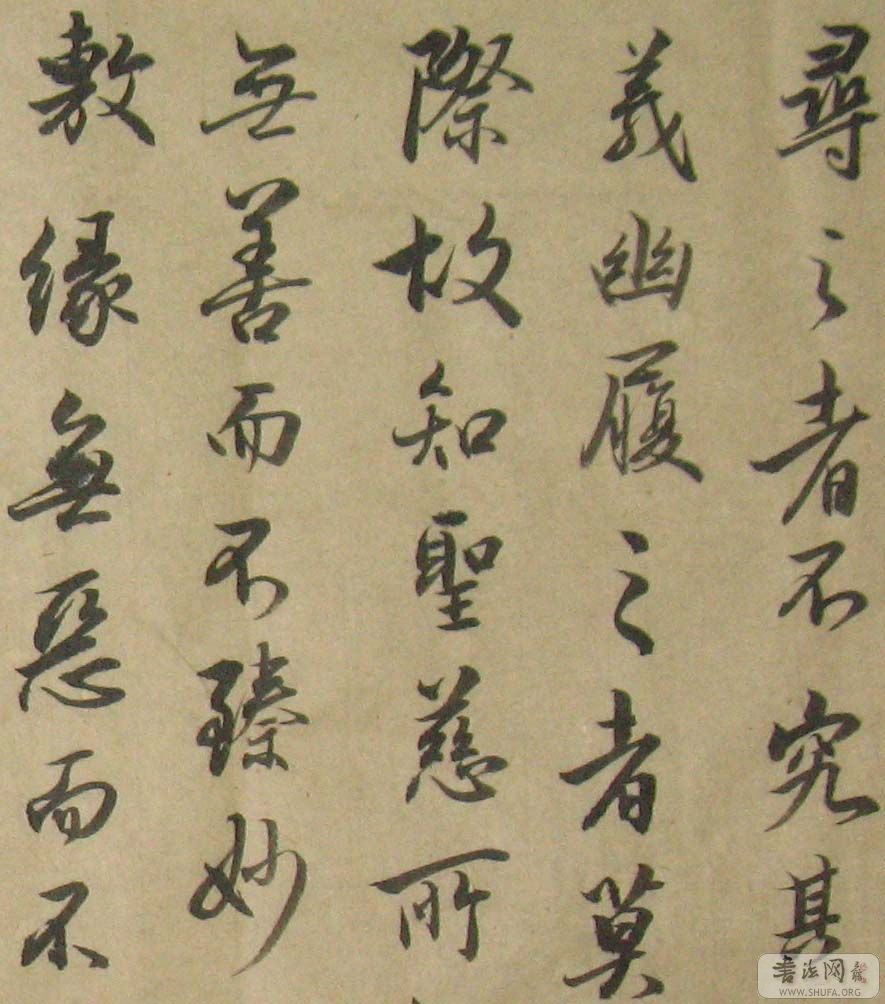 尋之者不究其
義幽履之者莫
際故知聖慈所
無善而不臻妙
敷緣無惡而不
書法网
WWW.SHUFA.ORG